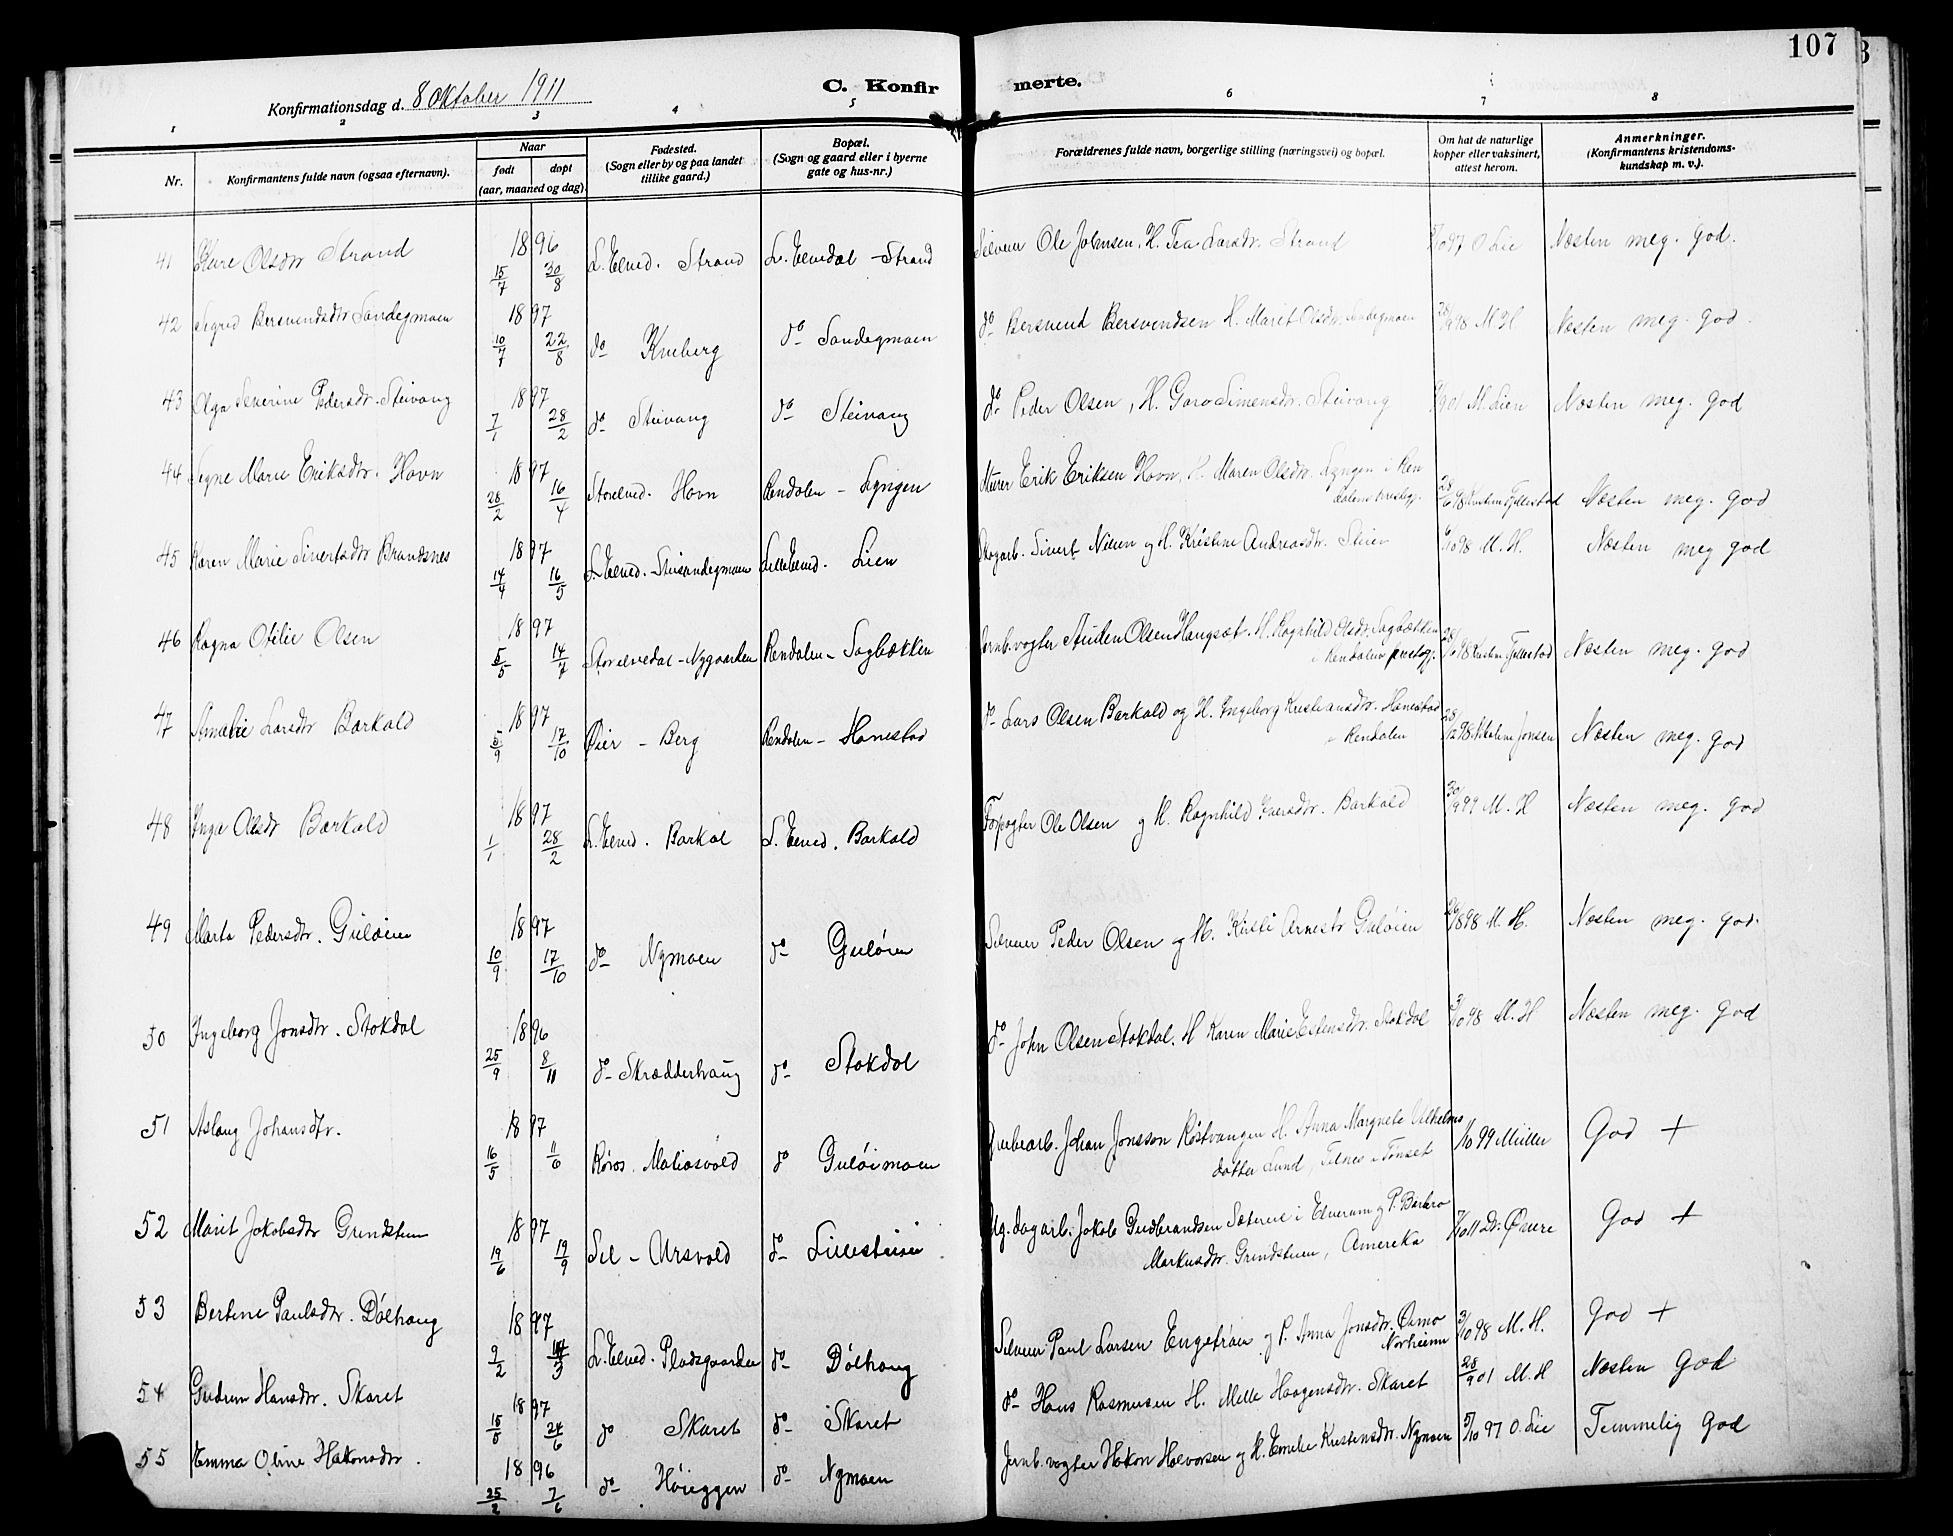 107
Konfirmationsdag d. 8 Oktober 1911
C. Konfirmerte.
1 2 3 4 5 6 7 8
Nr.
Konfirmantens fulde navn (ogsaa efternavn).
Naar
født
døpt
(aar, maaned og dag).
Fødested.
(Sogn eller by og paa landet
tillike gaard.)
Bopæl.
(Sogn og gaard eller i byerne
gate og hus-nr.)
Forældrenes fulde navn, borgerlige stilling (næringsvei) og bopæl.
Om hat de naturlige
kopper eller vaksinert,
attest herom.
Anmerkninger.
(Konfirmantens kristendoms-
kundskap m. v.).
41 Kare Olsdtr Strand 1896 15/7 30/8 L. Elved. Strand L. Elvedal - Strand Selveier Ole Johnsen, H. Tea Larsdr. Strand 97 O Lie Næsten meg. god.
42 Sigrid Bersvendsdtr Sandegmoen 1897 10/7 22/8 do Kveberg do Sandegmoen do Bersvend Bersvendsen H. Marit Olsdr. Sandegmoen 28/9 98 M H Næsten meg. god
43 Olga Severine Pedersdr. Steivang 1897 7/1 28/2 do Steivang do Steivang do Peder Olsen, H. Goro Simensdr. Steivang 01 M. Lien Næsten meg. god
44 Signe Marie Eriksdtr. Hovn 1897 28/2 16/4 Storelved. Hovn Rendalen - Lyngen Murer Erik Eriksen Hovn, H. Maren Olsdtr. Lyngen i Ren
dalens prestegj. 28/6 98 Kristine Fjellestad Næsten meg. god
45 Karen Marie Sivertsdtr Brandsnes 1897 14/4 16/5 L. Elved. - Steisandegmoen Lille Elved. Lien Skogarb. Sivert Nilsen og H. Kristine Andreasdtr. Steien 6/10 98 M. H. Næsten meg god
46 Ragna Otilie Olsen 1897 5/5 14/7 Storelvedal - Nygaarden Rendalen - Sagbækken Jernb.vogter Auden Olsen Haugsæt. H. Ragnhild Olsdr. Sagbækken
i Rendalen prestegj. 28/10 98 Kristine Fjellestad Næsten meg. god
47 Amalie Larsdtr Barkald 1897 5/9 17/10 Øier - Berg Rendalen - Hanestad do Lars Olsen Barkald og H. Ingeborg Kristiansdtr. Hanestad
i Rendalen 28/12 98 Jonsen Næsten meg. god
48 Inga Olsdr Barkald 1897 1/1 28/2 L. Elved. Barkal L. Elved. Barkald Forpagter Ole Olsen og H. Ragnhild Iversdtr. Barkald 30/9 99 M. H Næsten meg. god
49 Marta Pedersdtr. Guløien 1897 10/9 17/10 do Nymoen do Guløien Selveier Peder Olsen og H. Kirsti Arnestr Guløien 26/8 98 M. H. Næsten meg. god.
50 Ingeborg Jonsdtr. Stokdal 1896 25/9 8/11 do - Skrædderhaug do Stokdal do John Olsen Stokdal, H Karen Marie Estensdtr. Stokdal 3/10 98 M. H Næsten meg. god
51 Aslaug Johansdtr. 1897 16/5 11/6 Røros. Matiasvold do Guløimoen Grubearb. Johan Jonsson Røstvangen H. Anna Margrete Vilhelms
datter Lund, Telnes i Tønset 1/10 99 Müller God +
52 Marit Jakobsdtr Grindstuen 1897 19/6 19/9 Sel - Ursvold do Lillesteien Ug. dagarb. Jakob Gudbrandsen Sæteren i Elverum og P. Barbro
Markusdtr. Grindstuen, Amerika 11 Dr. Øvere God +
53 Bertine Paulsdtr. Dølhaug 1897 9/2 14/3 L. Elved. Pladsgaarden do Dølhaug Selveier Paul Larsen Engetrøen og P. Anna Jonsdtr. Osmo
Norheimn 3/10 98 M. H. God +
54 Gudrun Hansdtr. Skaret 1897 15/5 24/6 do Skaret do Skaret do Hans Rasmusen H. Mille Haagensdtr. Skaret 28/9 01 M. H Næsten God
55 Emma Oline Hakonsdtr. 1896 25/2 7/6 do Høieggen do Nymoen Jernb.vogter Hakon Halvorsen og H. Emilie Kristensdtr. Nymoen 5/10 97 O. Lie Temmelig God